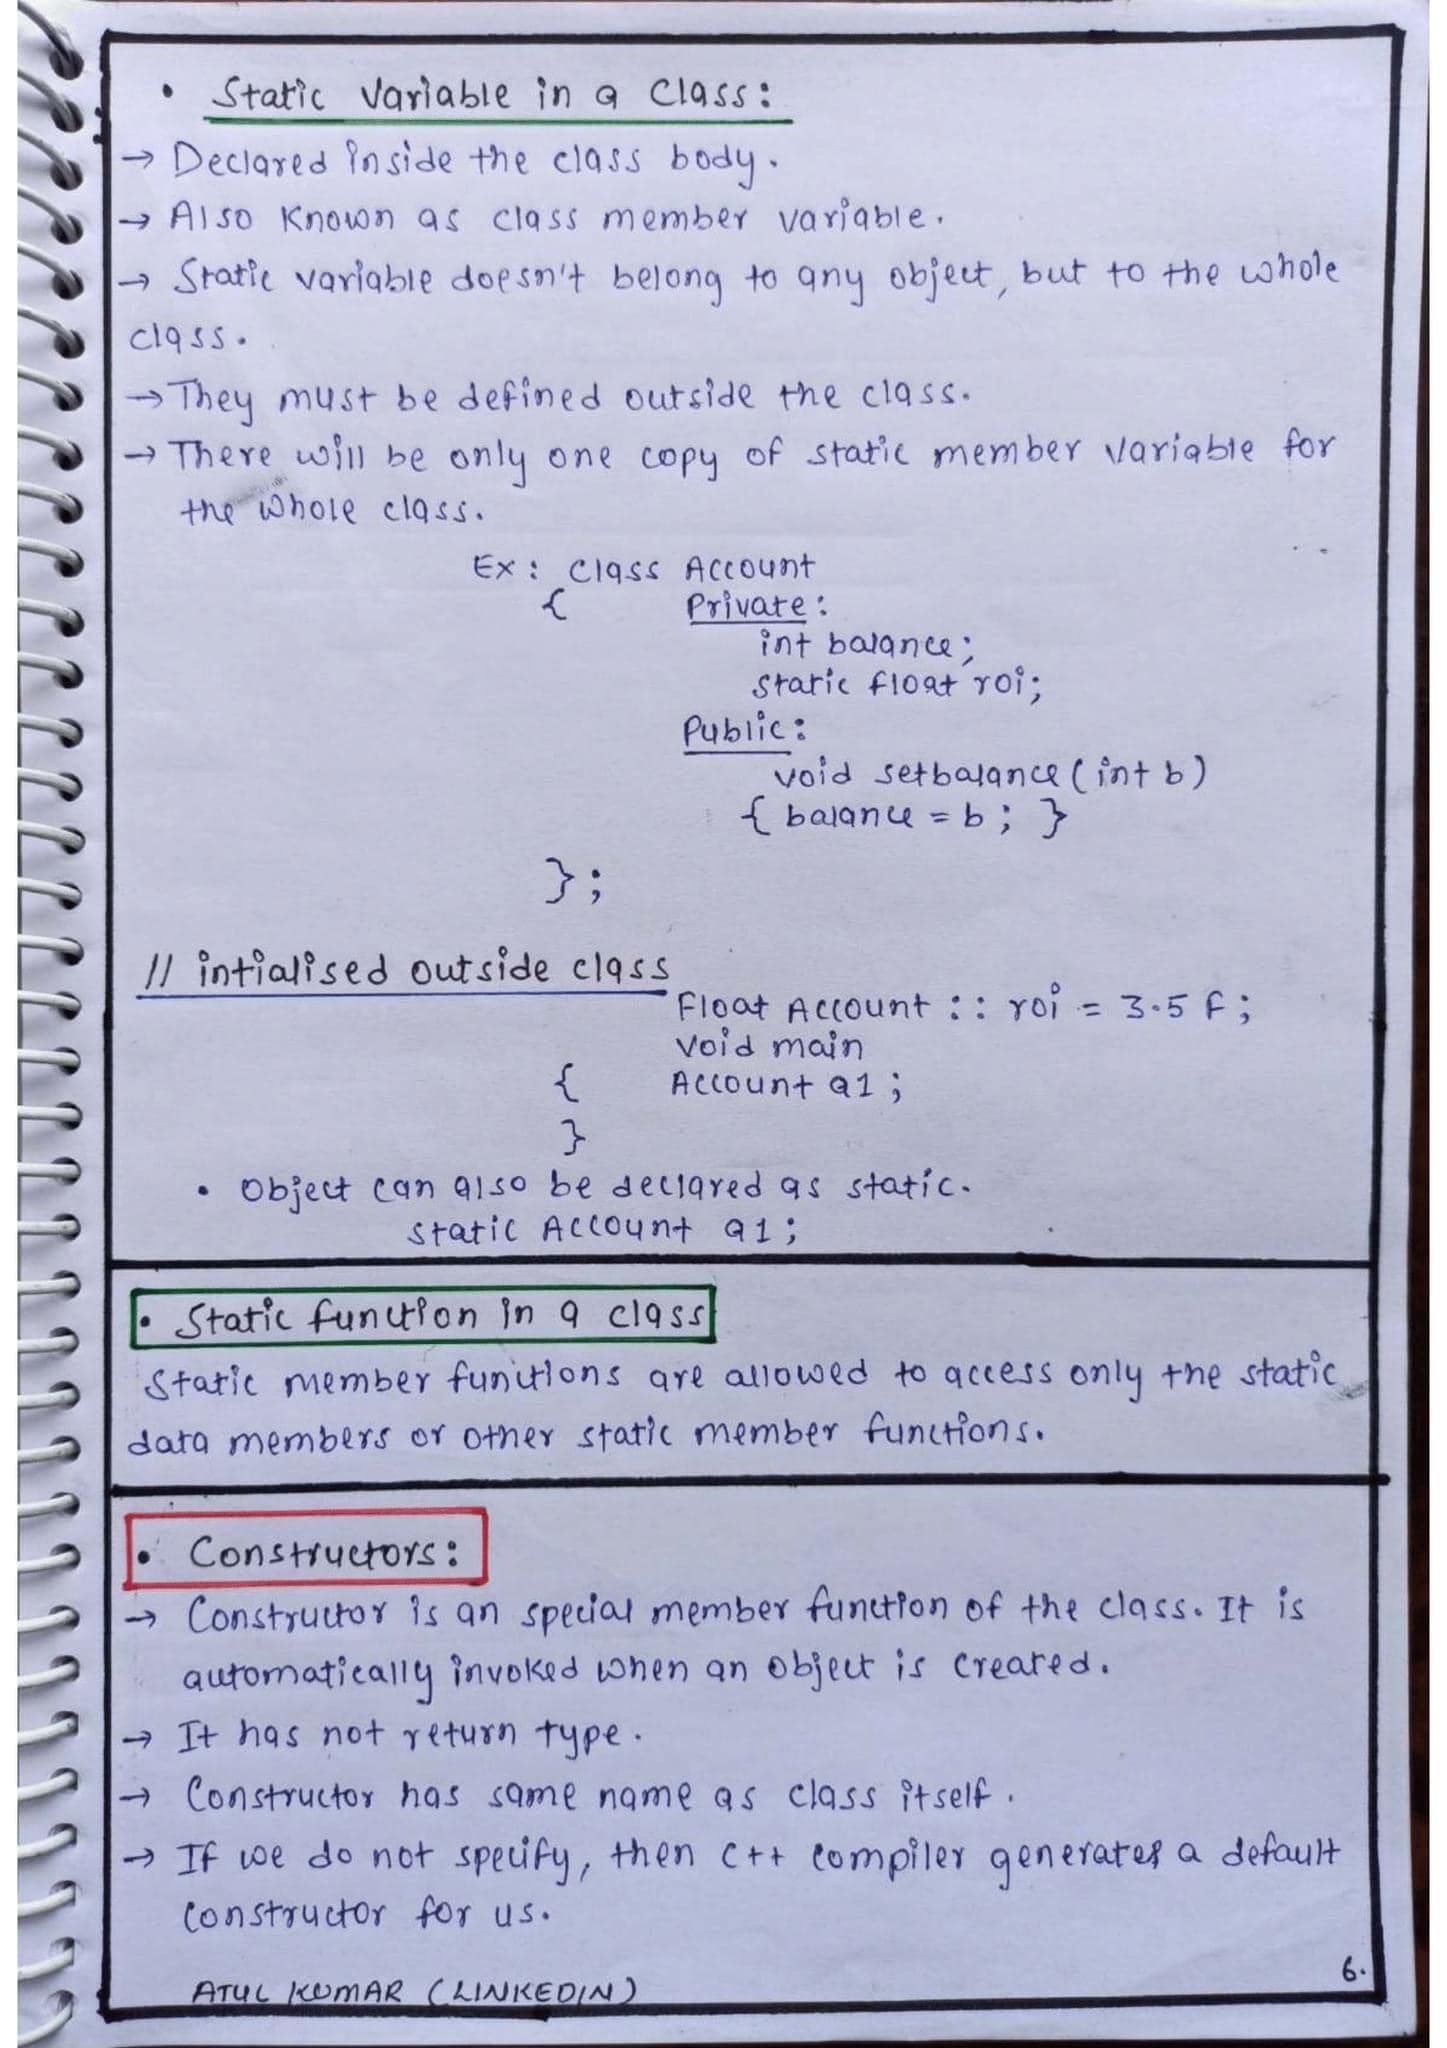 • Static Variable in a Class:
→ Declared inside the class body.
→ Also Known as class member variable.
→ Static variable doesn't belong to any object, but to the whole
class.
→ They must be defined outside the class.
→ There will be only one copy of static member variable for
the whole class.
Ex: Class Account
{ Private:
int balance;
static float roi;
Public:
void setbalance(int b)
{ balance = b; }
};
// intialised outside class
Float Account :: roi = 3.5 f;
Void main
{ Account a1;
}
• Object can also be declared as static.
static Account a1;
• Static function in a class
Static member functions are allowed to access only the static
data members or other static member functions.
• Constructors:
→ Constructor is an special member function of the class. It is
automatically invoked when an object is created.
→ It has not return type.
→ Constructor has same name as class itself.
→ If we do not specify, then C++ compiler generates a default
constructor for us.
ATUL KUMAR (LINKEDIN)
6.